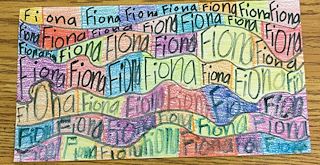 Fiona Fiona Fiona Fiona Fiona Fiona Fiona
Fiona Fiona Fiona Fiona Fiona Fiona Fiona
Fiona Fiona Fiona Fiona Fiona Fiona
Fiona Fiona Fiona Fiona Fiona Fiona Fiona
Fiona Fiona Fiona Fiona Fiona Fiona
Fiona Fiona Fiona Fiona Fiona Fiona